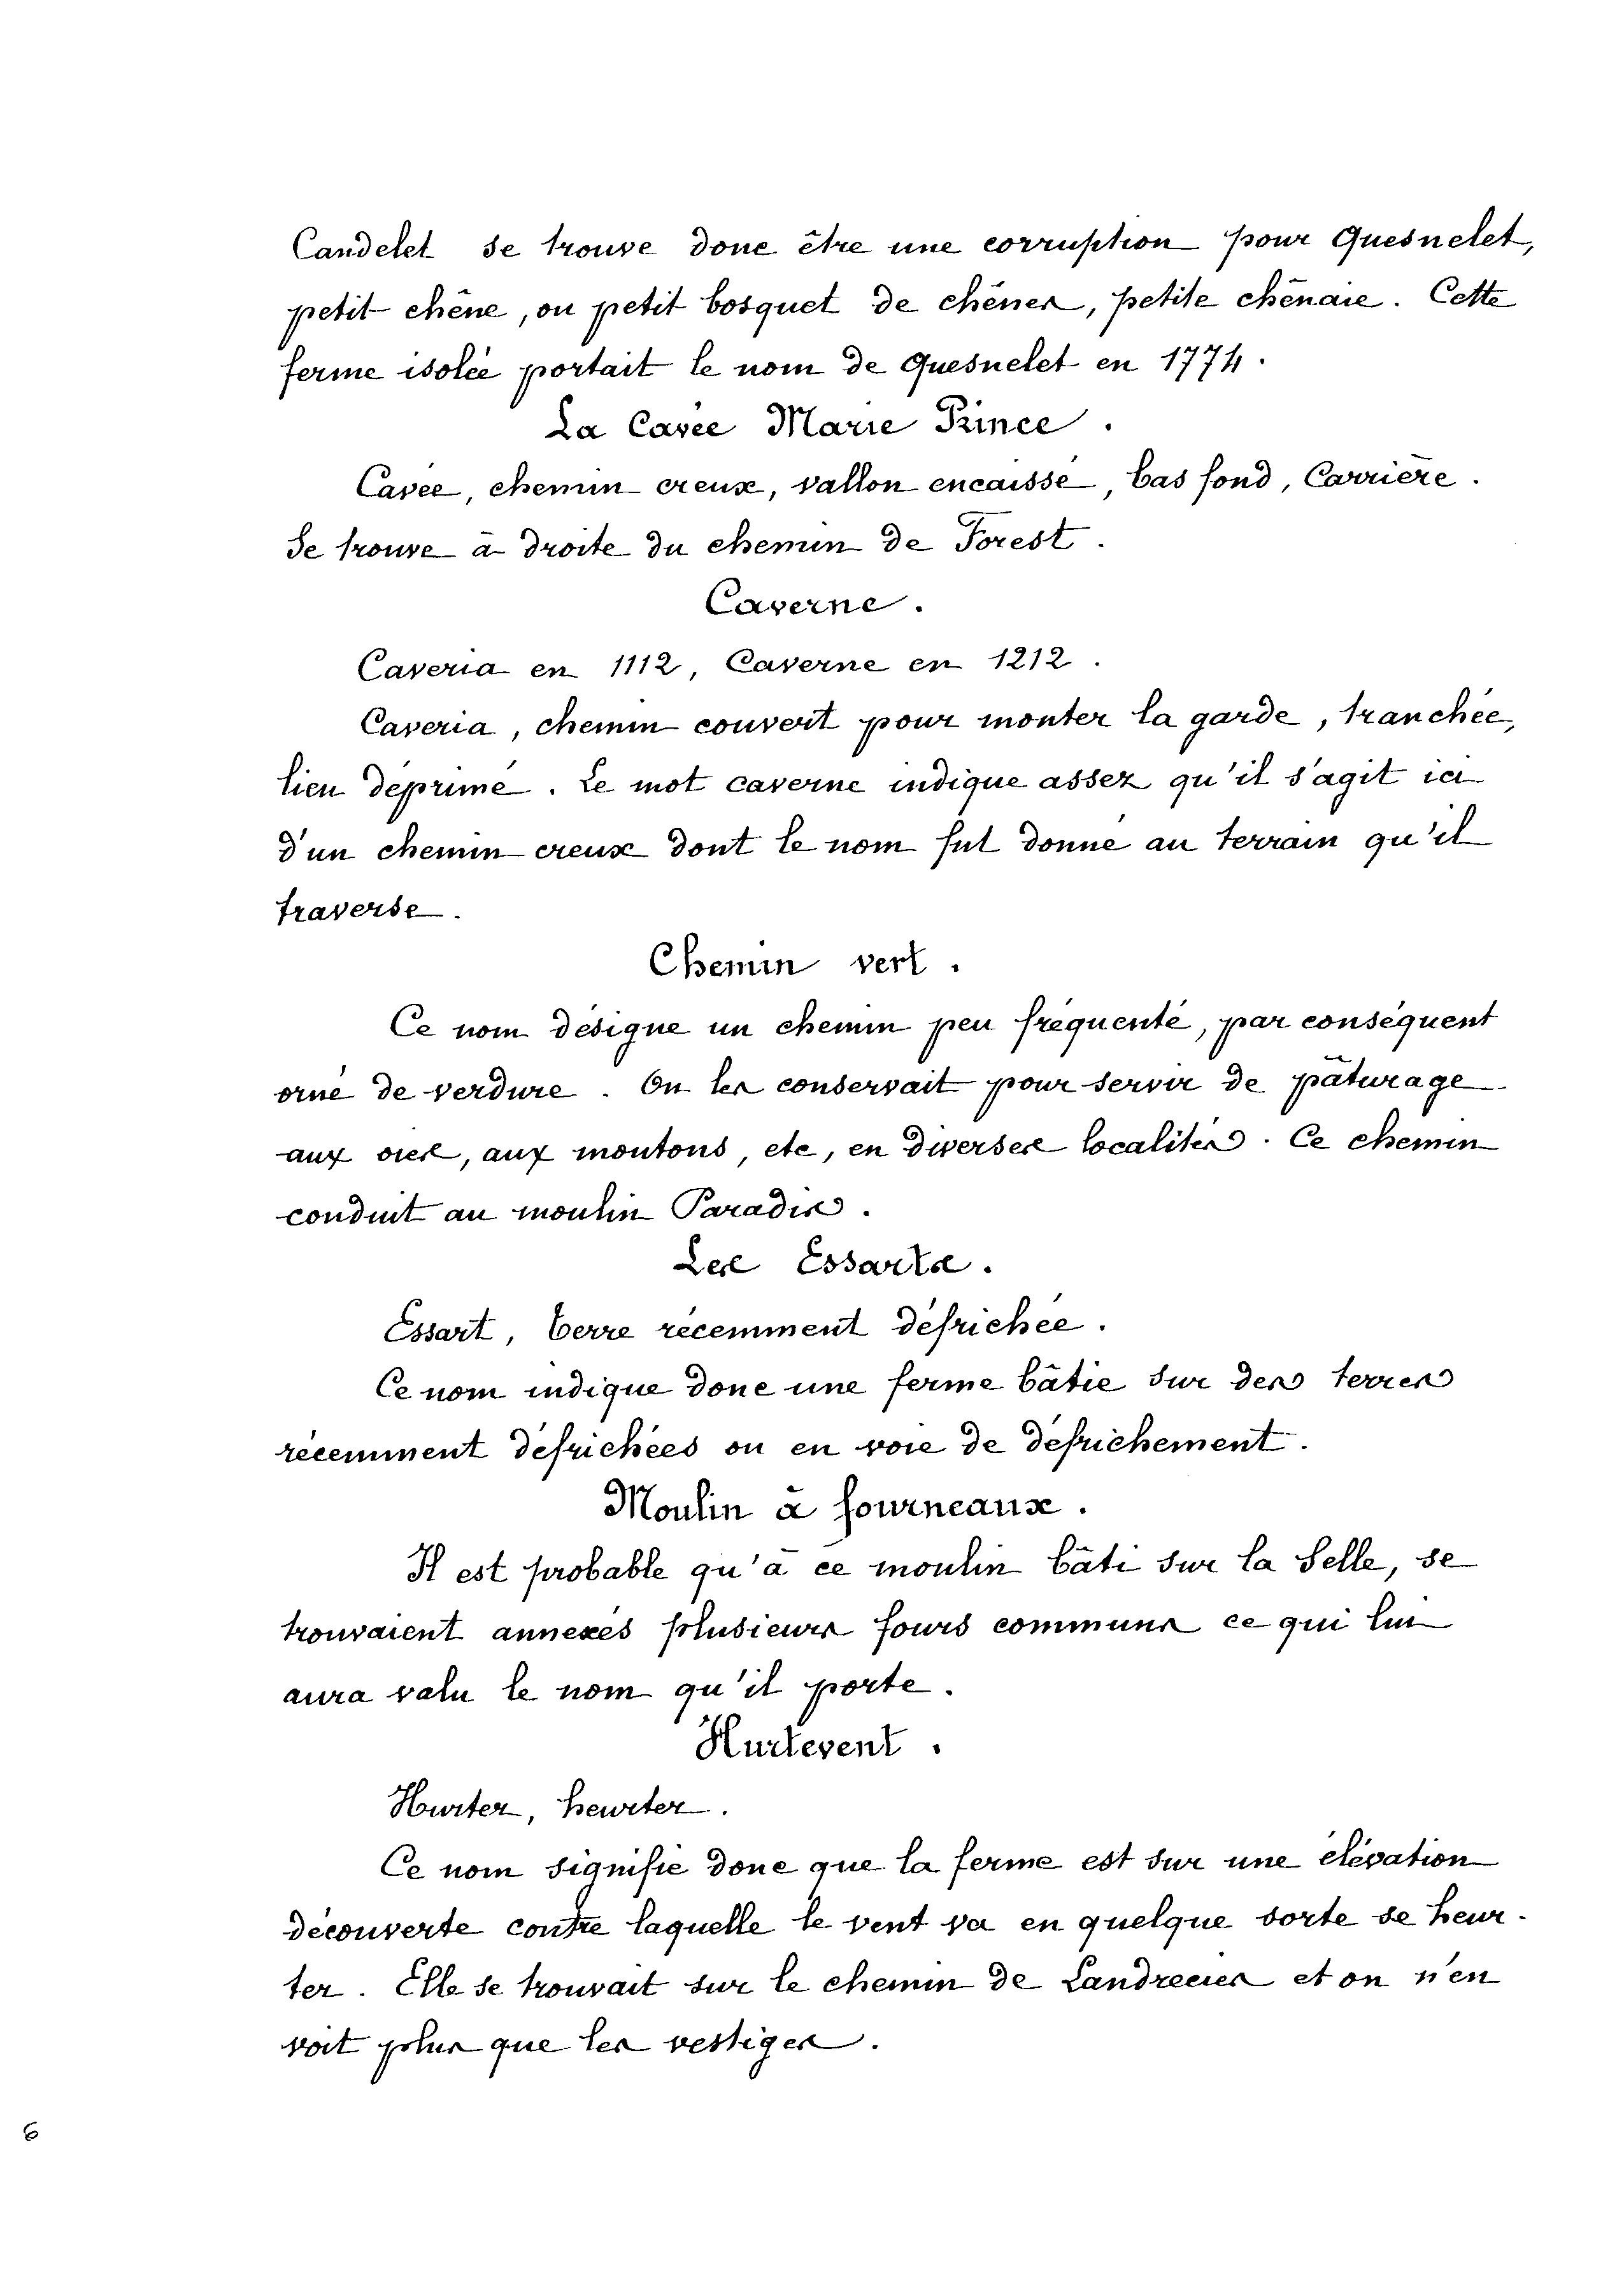 Candelet se trouve donc être une corruption pour Quesnelet,
petit chêne, ou petit bosquet de chênes, petite chênaie. Cette
ferme isolée portait le nom de Quesnelet en 1774.
La Cavée Marie Prince.
Cavée, chemin creux, vallon encaissé, bas fond, Carrière.
Se trouve à droite du chemin de Forest.
Caverne.
Caveria en 1112, Caverne en 1212.
Caveria, chemin couvert pour monter la garde, tranchée,
lieu déprimé. Le mot caverne indique assez qu'il s'agit ici
d'un chemin creux dont le nom fut donné au terrain qu'il
traverse.
Chemin vert.
Ce nom désigne un chemin peu fréquenté, par conséquent
orné de verdure. On les conservait pour servir de pâturage
aux oies, aux moutons, etc, en diverses localités. Ce chemin
conduit au moulin Paradis.
Les Essarts.
Essart, terre récemment défrichée.
Ce nom indique donc une ferme bâtie sur des terres
récemment défrichées ou en voie de défrichement.
Moulin à fourneaux.
Il est probable qu'à ce moulin bâti sur la Selle, se
trouvaient annexés plusieurs fours communs ce qui lui
aura valu le nom qu'il porte.
Hurtevent.
Hurter, heurter.
Ce nom signifie donc que la ferme est sur une élévation
découverte contre laquelle le vent va en quelque sorte se heur-
ter. Elle se trouvait sur le chemin de Landrecies et on n'en
voit plus que les vestiges.
6